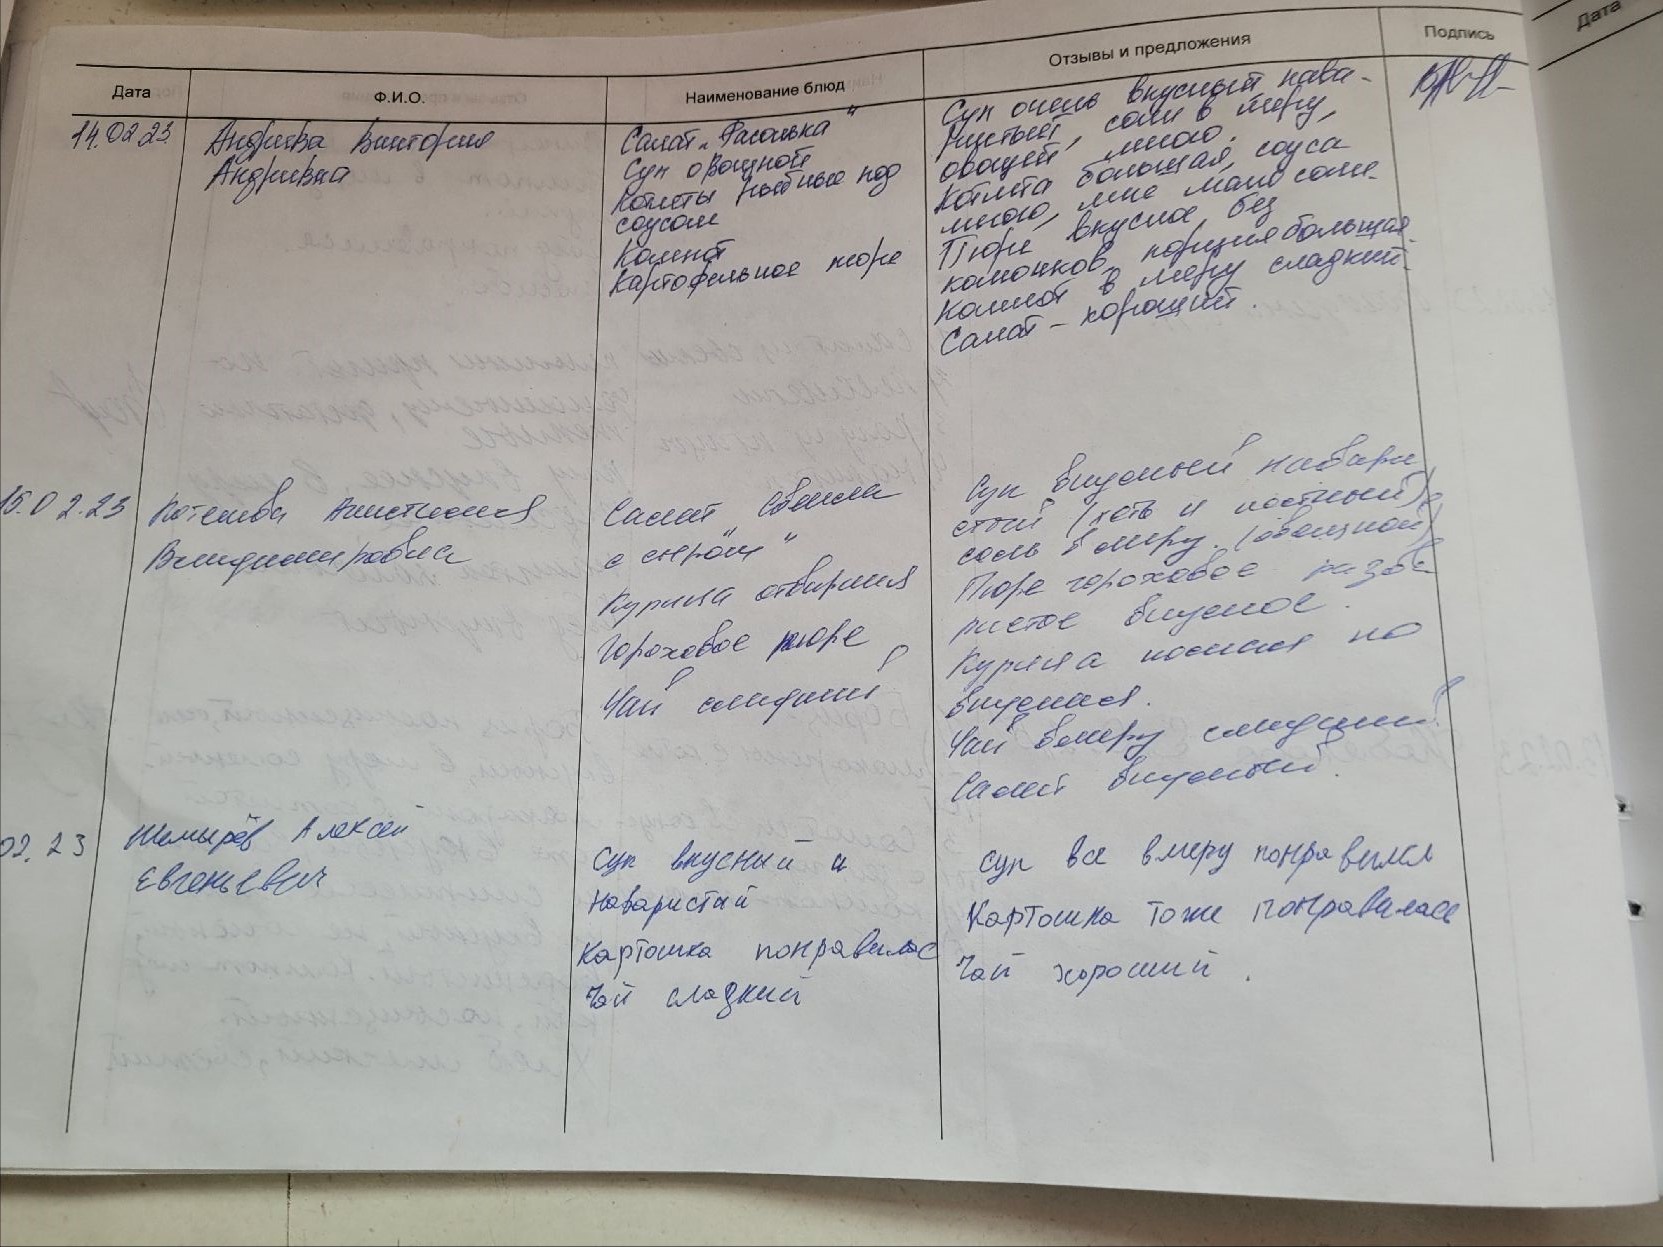 Дата Ф.И.О. Наименование блюд Отзывы и предложения Подпись
Дата
14.02.23
Андреева Виктория
Андреевна
Салат "Фасолька"
Суп овощной
Котлеты рыбные под
соусом
Компот
Картофельное пюре
Суп очень вкусный нава-
ристый, соли в меру,
овощей много.
Котлета большая, соуса
много, мне мало соли.
Пюре вкусное, без
комочков, порция большая.
Компот в меру сладкий.
Салат - хороший.
15.02.23
Анастасия
Владимировна
Салат Свекла
с сыром"
Курица отварная
Гороховое пюре
Чай сладкий
Суп вкусный навари
стый (хоть и постный)
соль в меру. (овощной)
Пюре гороховое
вкусное.
Курица
вкусная.
Чай в меру сладкий.
Салат вкусный.
02.23
Алексей
Евгеньевич
Суп вкусный и
наваристый
Картошка понравилас
Чай сладкий
Суп все в меру понравился
Картошка тоже понравилась
Чай хороший.